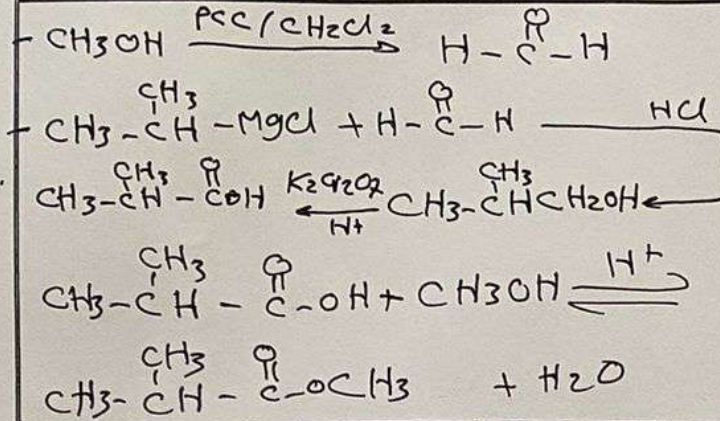 - CH3OH PCC/CH2Cl2 → H-C-H
O
CH3
- CH3-CH-MgCl + H-C-H HCl
O
CH3 O
CH3-CH-COH K2Cr2O7 H+ ← CH3-CHCH2OH ←
CH3
CH3 O
CH3-CH-C-OH + CH3OH H+ ⇌
CH3 O
CH3-CH-C-OCH3 + H2O